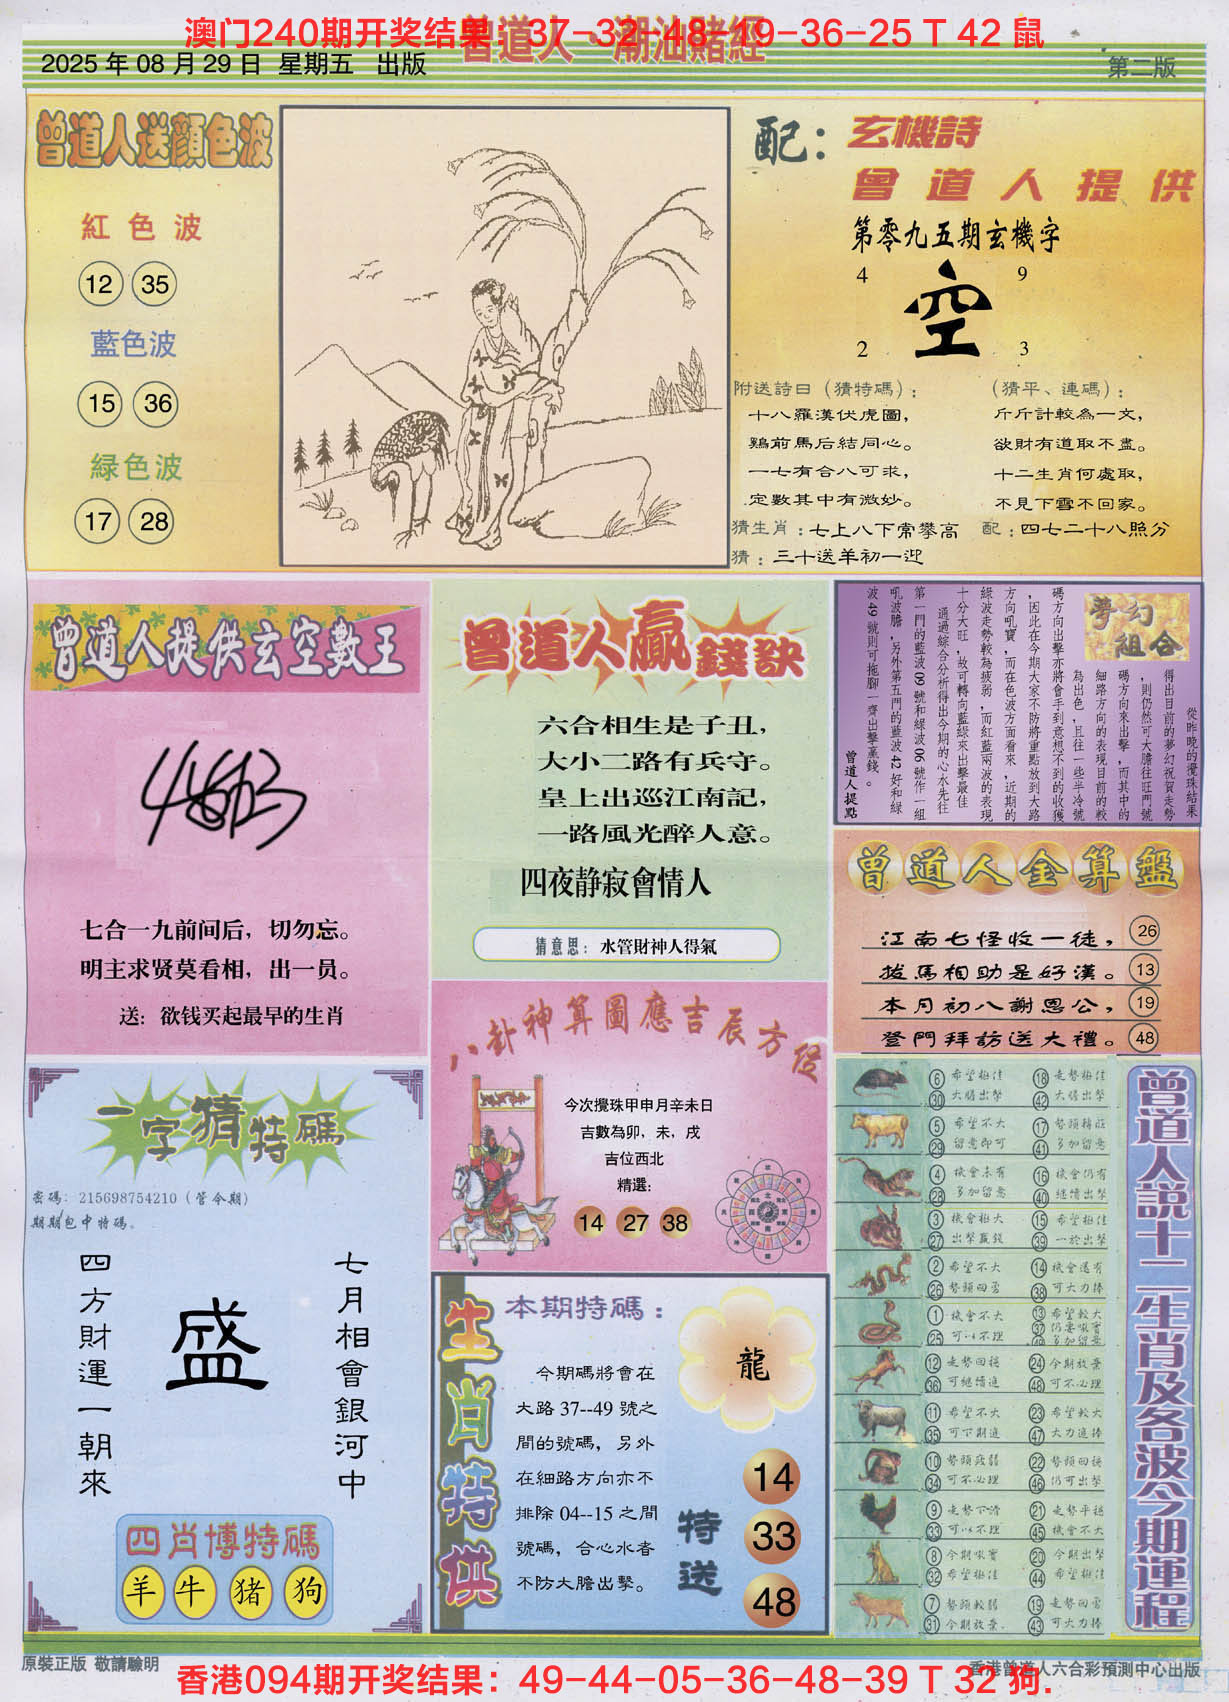 澳门240期开奖结果：37-32-48-19-36-25 T 42 鼠
曾道人·潮汕賭經
2025 年 08 月 29 日 星期五 出版
第二版
曾道人送顏色波
紅色波
12 35
藍色波
15 36
緑色波
17 28
配：玄機詩
曾道人提供
第零九五期玄機字
4 9
空
2 3
附送詩曰（猜特碼）：
十八羅漢伏虎圖，
鷄前馬后結同心。
一七有合八可求，
定數其中有微妙。
（猜平、連碼）：
斤斤計較為一文，
欲財有道取不盡。
十二生肖何處取，
不見下雪不回家。
猜生肖：七上八下常攀高 配：四七二十八照分
猜：三十送羊初一迎
曾道人提供玄空數王
七合一九前间后，切勿忘。
明主求贤莫看相，出一员。
送：欲钱买起最早的生肖
曾道人贏錢訣
六合相生是子丑，
大小二路有兵守。
皇上出巡江南記，
一路風光醉人意。
四夜静寂會情人
猜意思：水管財神人得氣
夢幻組合
從昨晚的攪珠結果
得出目前的夢幻祝賀走勢
，則仍然可大膽往旺門號
碼方向來出擊，而其中的
細路方向的表現目前的較
為出色，且往一些半冷號
碼方向出擊亦將會手到意想不到的收獲
，因此在今期大家不防將重點放到大路
方向吼寶，而在色波方面看來，近期的
綠波走勢較為疲弱，而紅藍兩波的表現
十分大旺，故可轉向藍綠來出擊最佳
通過綜合分析得出今期的心水先往
第一門的藍波09號和綠波06號作一組
吼波膽，另外第五門的藍波42好和綠
波49號則可拖腳一齊出擊贏錢。
曾道人提點
曾道人金算盤
江南七怪收一徒， 26
拔馬相助是好漢。 13
本月初八謝恩公， 19
登門拜訪送大禮。 48
八卦神算圖應吉辰方位
今次攪珠甲申月辛未日
吉數為卯，未，戌
吉位西北
精選：
14 27 38
一字猜特碼
密碼：215698754210（管今期）
期期包中特碼。
七月相會銀河中
盛
四方財運一朝來
四肖博特碼
羊 牛 猪 狗
生肖特供
本期特碼：
龍
今期碼將會在
大路 37--49 號之
間的號碼，另外
在細路方向亦不
排除 04--15 之間
號碼，合心水者
不防大膽出擊。
特送
14
33
48
曾道人説十二生肖及各波今期運程
6 30 希望極佳 大膽出擊 18 42 走勢極佳 大膽出擊
5 29 希望不大 留意即可 17 41 勢頭轉旺 多加留意
4 28 機會未有 多加留意 16 40 機會仍有 繼續出擊
3 27 機會極大 出擊贏錢 15 39 希望極佳 一於出擊
2 26 希望不大 勢頭回勇 14 38 機會還有 可大力捧
1 25 機會不大 可以不理 13 37 49 希望較大 仍要吼實 多加留意
12 36 走勢回穩 可繼續追 24 48 今期放棄 可不必理
11 35 希望不大 可下期追 23 47 希望較大 大力追捧
10 34 勢頭疲弱 可不必理 22 46 勢頭回穩 仍可出擊
9 33 走勢下滑 可以不理 21 45 走勢平穩 機會不大
8 32 今期吼實 希望極佳 20 44 今期出擊 希望極佳
7 31 勢頭較弱 今期放棄 19 43 走勢回勇 可大力捧
原裝正版 敬請驗明
香港曾道人六合彩預測中心出版
香港094期开奖结果：49-44-05-36-48-39 T 32 狗.